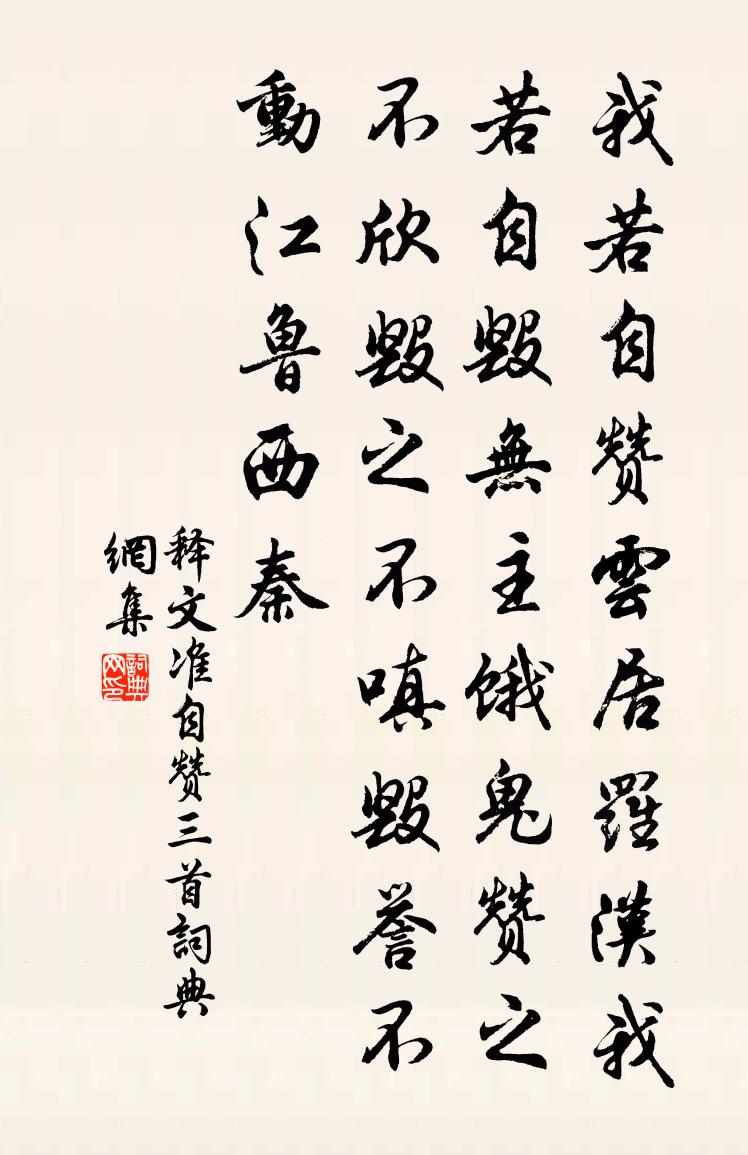 我若自赞雲居羅漢我
若自毀無主餓鬼赞之
不欣毀之不嗔毀譽不
動江魯西秦
释文准自赞三首詞典
網集
詞典
网印